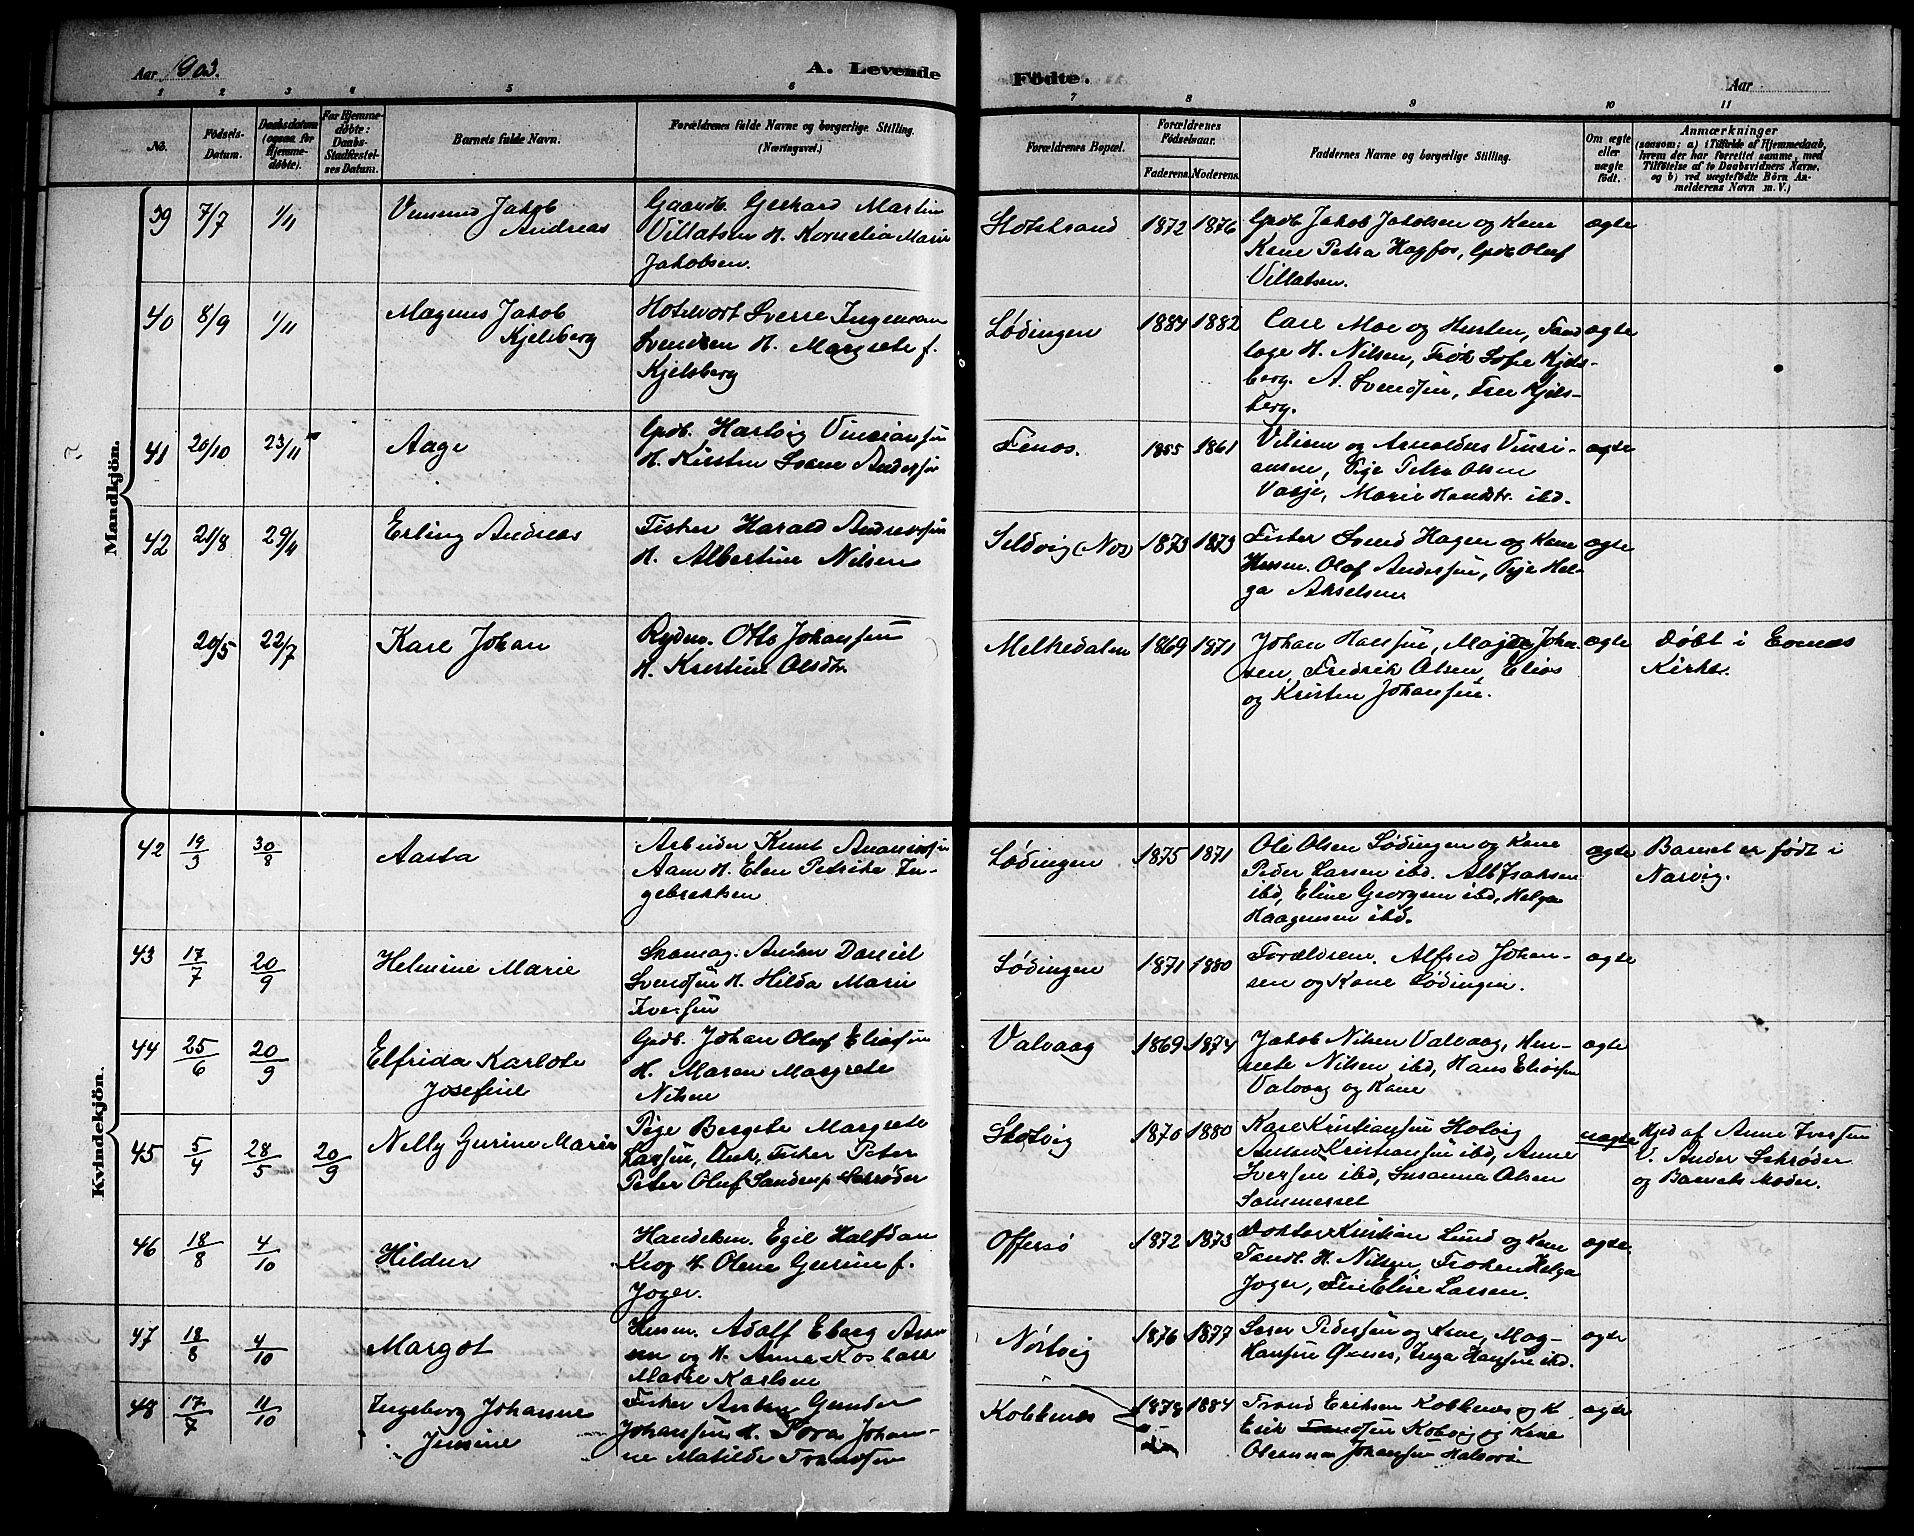 Aar 1903.
A. Levende
Fødte.
Aar
1 2 3 4 5 6
7 8 9 10 11
No.
Fødsels-
Datum.
Daabsdatum
(ogsaa for
Hjemme-
døbte).
For Hjemme-
døbte:
Daabs-
Stadfæstel-
ses Datum.
Barnets fulde Navn.
Forældrenes fulde Navne og borgerlige Stilling.
(Næringsvei.)
Forældrenes Bopæl.
Forældrenes
Fødselsaar.
Faderens. Moderens.
Faddernes Navne og borgerlige Stilling.
Om ægte
eller
uægte
født.
Anmærkninger
(saasom: a) i Tilfælde af Hjemmedaab,
hvem der har forrettet samme, med
Tilføielse af to Daabsvidners Navne,
og b) ved uægtefødte Børn An-
melderens Navn m. V.)
Mandkjön.
39 7/7 1/11
Jakob
Andreas
Gaardb. Gerhard Martin
Villatsen H. Kornelia Marie
Jakobsen.
1872 1876
Gpdb Jakob Jakobsen og Kone
Kone Petra Hagfos, Gpdb Oluf
Villatsen.
ægte
40 8/9 1/11
Magnus Jakob
Kjelsberg
Hotelvert Sverre Ingemann
Svendsen H. Margrete f.
Kjelsberg
Lødingen
1884 1882
Carl Moe og Hustru, Tand
læge H. Nilsen, Frøk Sofie Kjels-
berg. A. Svendsen, Fru Kjels-
berg.
ægte
41 20/10 23/11
Aage
Gpdb. Hartvig
H. Kirsten
1855 1861
og Arnoldus
Pige Petra Olsen
Marie ibd.
ægte
42 21/8 29/11
Erling Andreas
Fisker Harald Andreassen
H. Albertine Nilsen
Sildvig (Nor)
1873 1873
Fisker Svend Hagen og Kone
Husm. Olaf Andersen, Pige Hel-
ga Akselsen
ægte
20/5 22/7
Karl Johan
Rydn. Otto Johansen
H. Kristine Olsdtr
Melkedalen
1869 1871
Johan Hansen, Johan-
sen, Fredrik Olsen, Elias
og Kristen Johansen.
ægte
Døbt i Evenæs
Kirke.
Kvindekjön.
42 19/3 30/8
Aasta
Arbeider Knut
Aam H. Elen Petrike In-
gebrektsen
Lødingen
1875 1871
Ole Olsen Lødingen og Kone
Peder Larsen ibd. Alb Isaksen
ibd, Eline Georgsen ibd, Helga
Haagensen ibd.
ægte
Barnet er født i
Narvig.
43 17/7 20/9
Helmine Marie
Skomag. Daniel
Svendsen H. Hilda Marie
Iversen
Lødingen
1871 1880
Forældrene. Alfred Johan-
sen og Kone Lødingen.
ægte
44 25/6 20/9
Elfrida Karlote
Josefine
Gpdb. Johan Oluf Eliasen
H. Maren Margrete
Nilsen
Valvaag
1869 1874
Jakob Nilsen Valvaag, Hen-
rette Nilsen ibd, Hans Eliasen
Valvaag og Kone
ægte
45 5/4 28/5 20/9
Nelly Gurine Marie
Pige Bergete Margrete
Larsen, Ank, Fisker Peter
Peter Oluf Sandrup Schrøder
1870 1880
Karl Kristiansen
Anton Kristiansen ibd, Anne
Iversen ibd, Susanna Olsen
Sommerset
uægte
Hjd af Anne Iversen
V. Ander Schrøder
og Barnets Moder.
46 18/8 4/10
Hildur
Handelsm. Egil Halfdan
Krog H Olene Gurine f.
Joger.
Offersø
1872 1873
Doktor Kristian Lund og Kone
Tandl. H. Nilsen, Frøken Helga
Joger, Fru Elise Larsen.
ægte
47 18/8 4/10
Margot
Husm. Adolf Eberg
og H. Anna
Marie Karlsen
1876 1877
Pedersen og Kone,
Hansen Inga Hansen ibd.
ægte
48 17/7 11/10
Ingeborg Johanne
Jensine
Fisker Anton Gunder
Johansen H. Tora Johan-
ne Matilde
Kobbenæs
1878 1884
Trond Eriksen Kobbenæs og K
Erik Kobvig og Kone
Oleanna Johansen
ægte